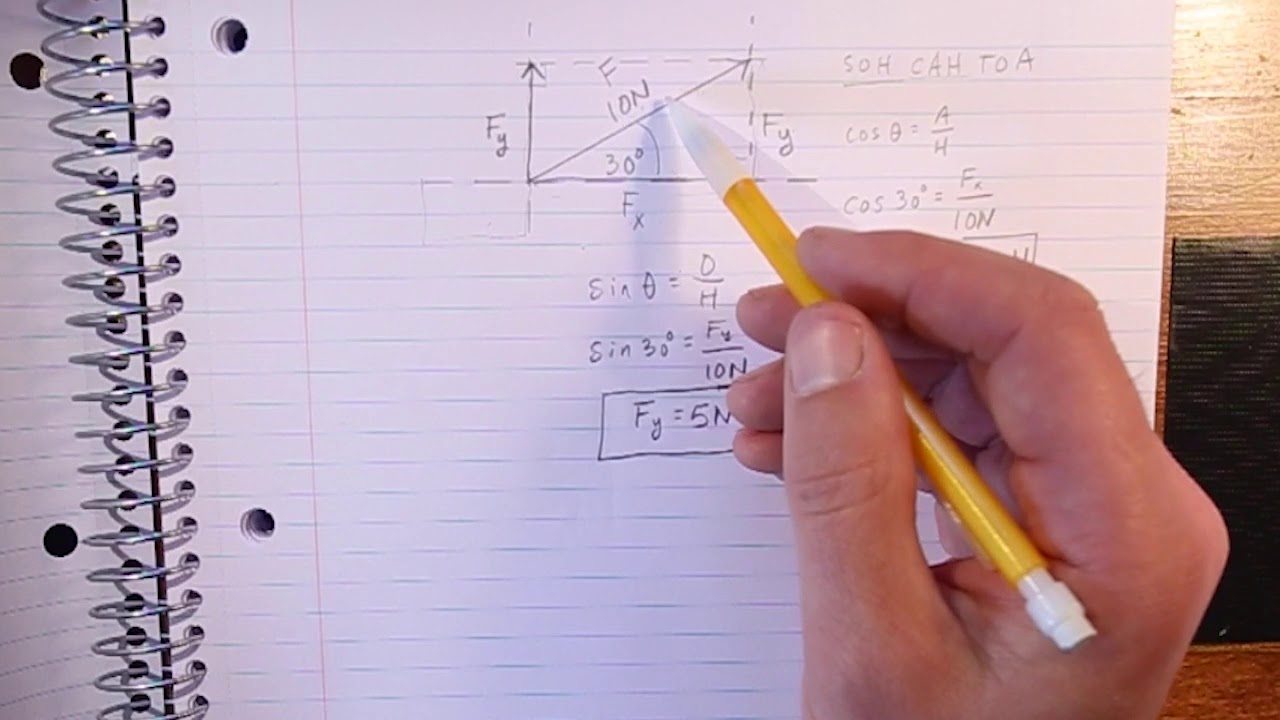 F
10N
F_y
F_y
30°
F_x
SOH CAH TOA
cos θ = A/H
cos 30° = F_x/10N
sin θ = O/H
sin 30° = F_y/10N
F_y = 5N